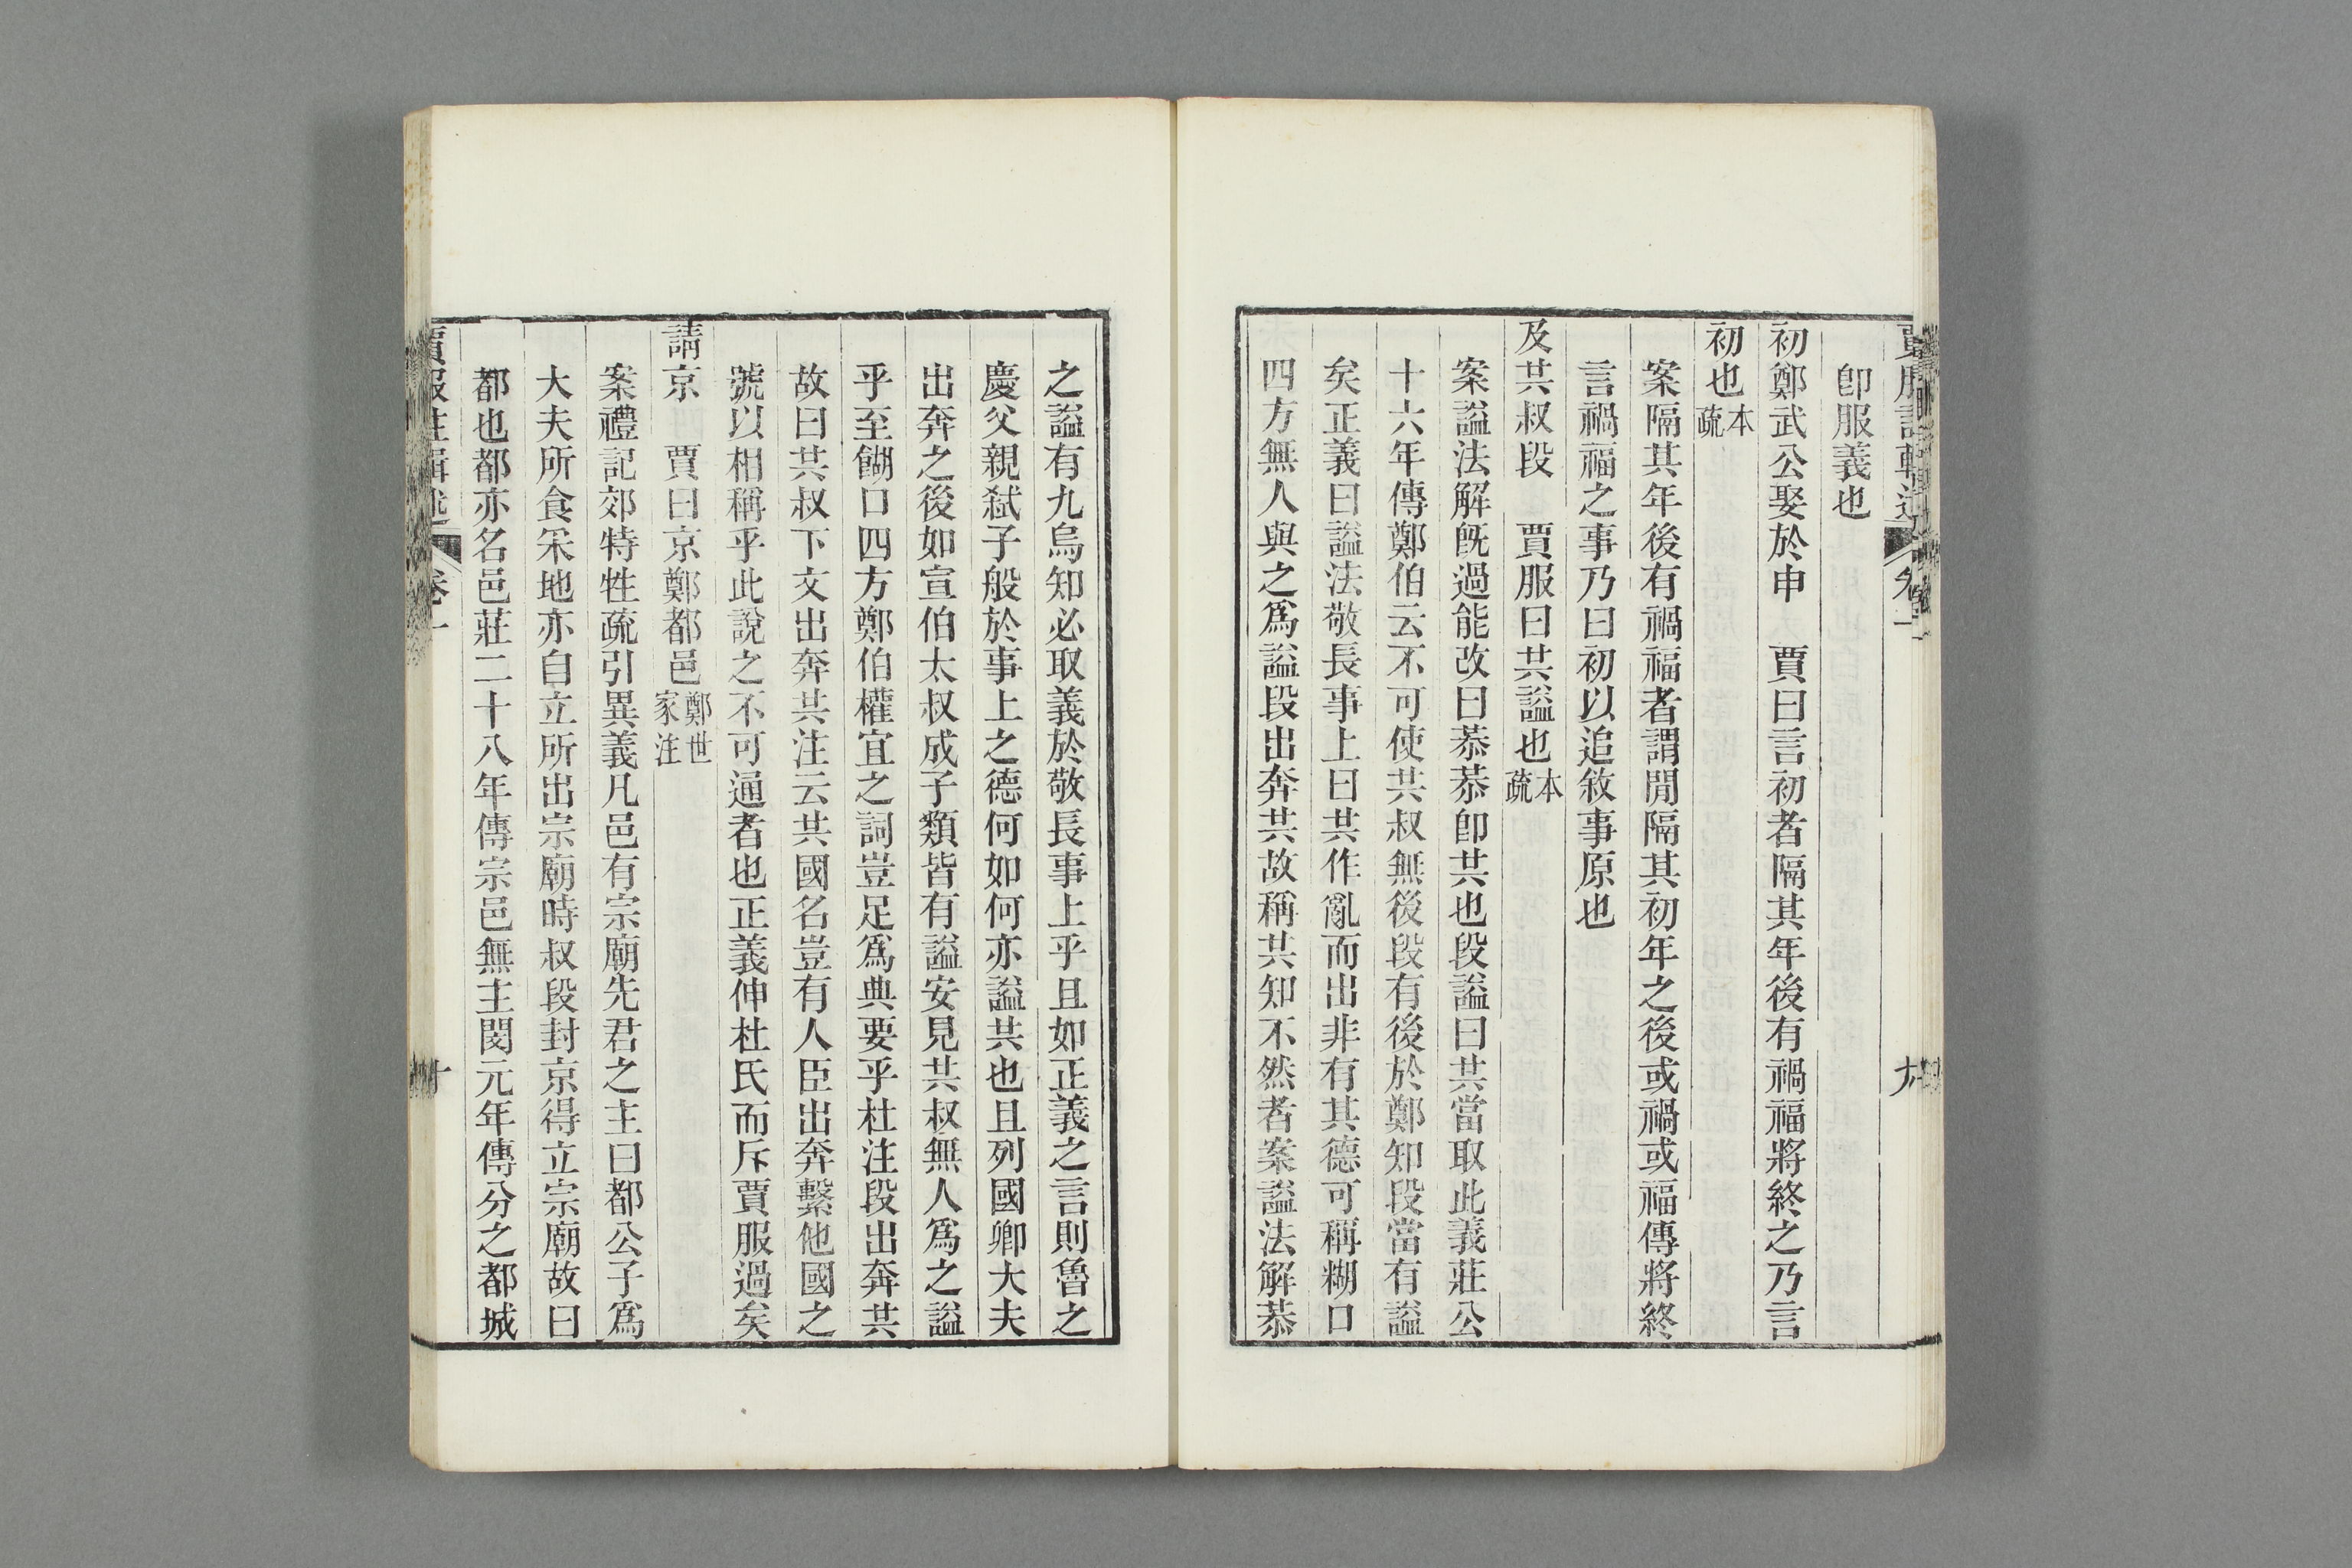 卽服義也
初鄭武公娶於申　賈曰言初者隔其年後有禍福將終之乃言
初也本疏
案隔其年後有禍福者謂閒隔其初年之後或禍或福傳將終
言禍福之事乃曰初以追敘事原也
及共叔段　賈服曰共謚也本疏
案謚法解旣過能改曰恭恭卽共也段謚曰共當取此義莊公
十六年傳鄭伯云不可使共叔無後段有後於鄭知段當有謚
矣正義曰謚法敬長事上曰共作亂而出非有其德可稱糊口
四方無人與之爲謚段出奔共故稱共知不然者案謚法解恭
之謚有九烏知必取義於敬長事上乎且如正義之言則魯之
慶父親弑子般於事上之德何如何亦謚共也且列國卿大夫
出奔之後如宣伯太叔成子類皆有謚安見共叔無人爲之謚
乎至餬口四方鄭伯權宜之詞豈足爲典要乎杜注段出奔共
故曰共叔下文出奔共注云共國名豈有人臣出奔繫他國之
號以相稱乎此說之不可通者也正義伸杜氏而斥賈服過矣
請京　賈曰京鄭都邑鄭世家注
案禮記郊特牲疏引異義凡邑有宗廟先君之主曰都公子爲
大夫所食采地亦自立所出宗廟時叔段封京得立宗廟故曰
都也都亦名邑莊二十八年傳宗邑無主閔元年傳分之都城
賈服注輯述
卷一
十